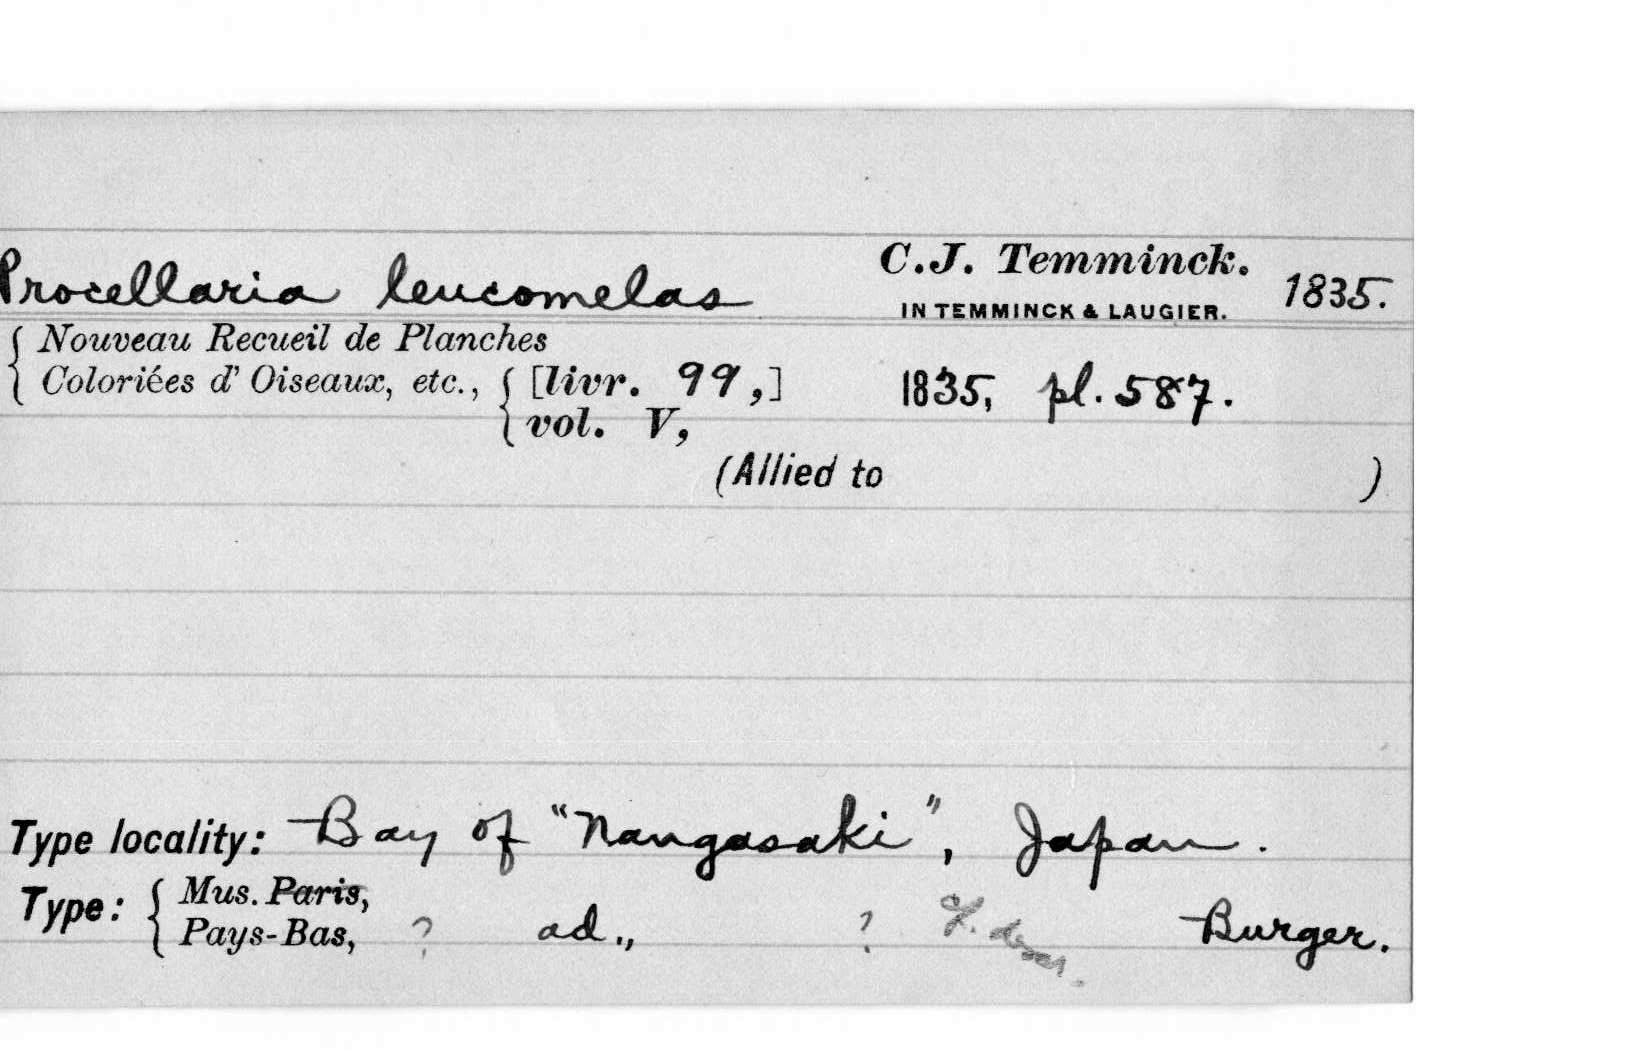 Procellaria leucomelas C.J. Temminck. 1835.
IN TEMMINCK & LAUGIER.
Nouveau Recueil de Planches
Coloriées d' Oiseaux, etc., [livr. 99,] 1835, pl. 587.
vol. V,
(Allied to )
Type locality: Bay of "Nangasaki", Japan.
Type: Mus. Paris,
Pays-Bas, ? ad., ? Burger.